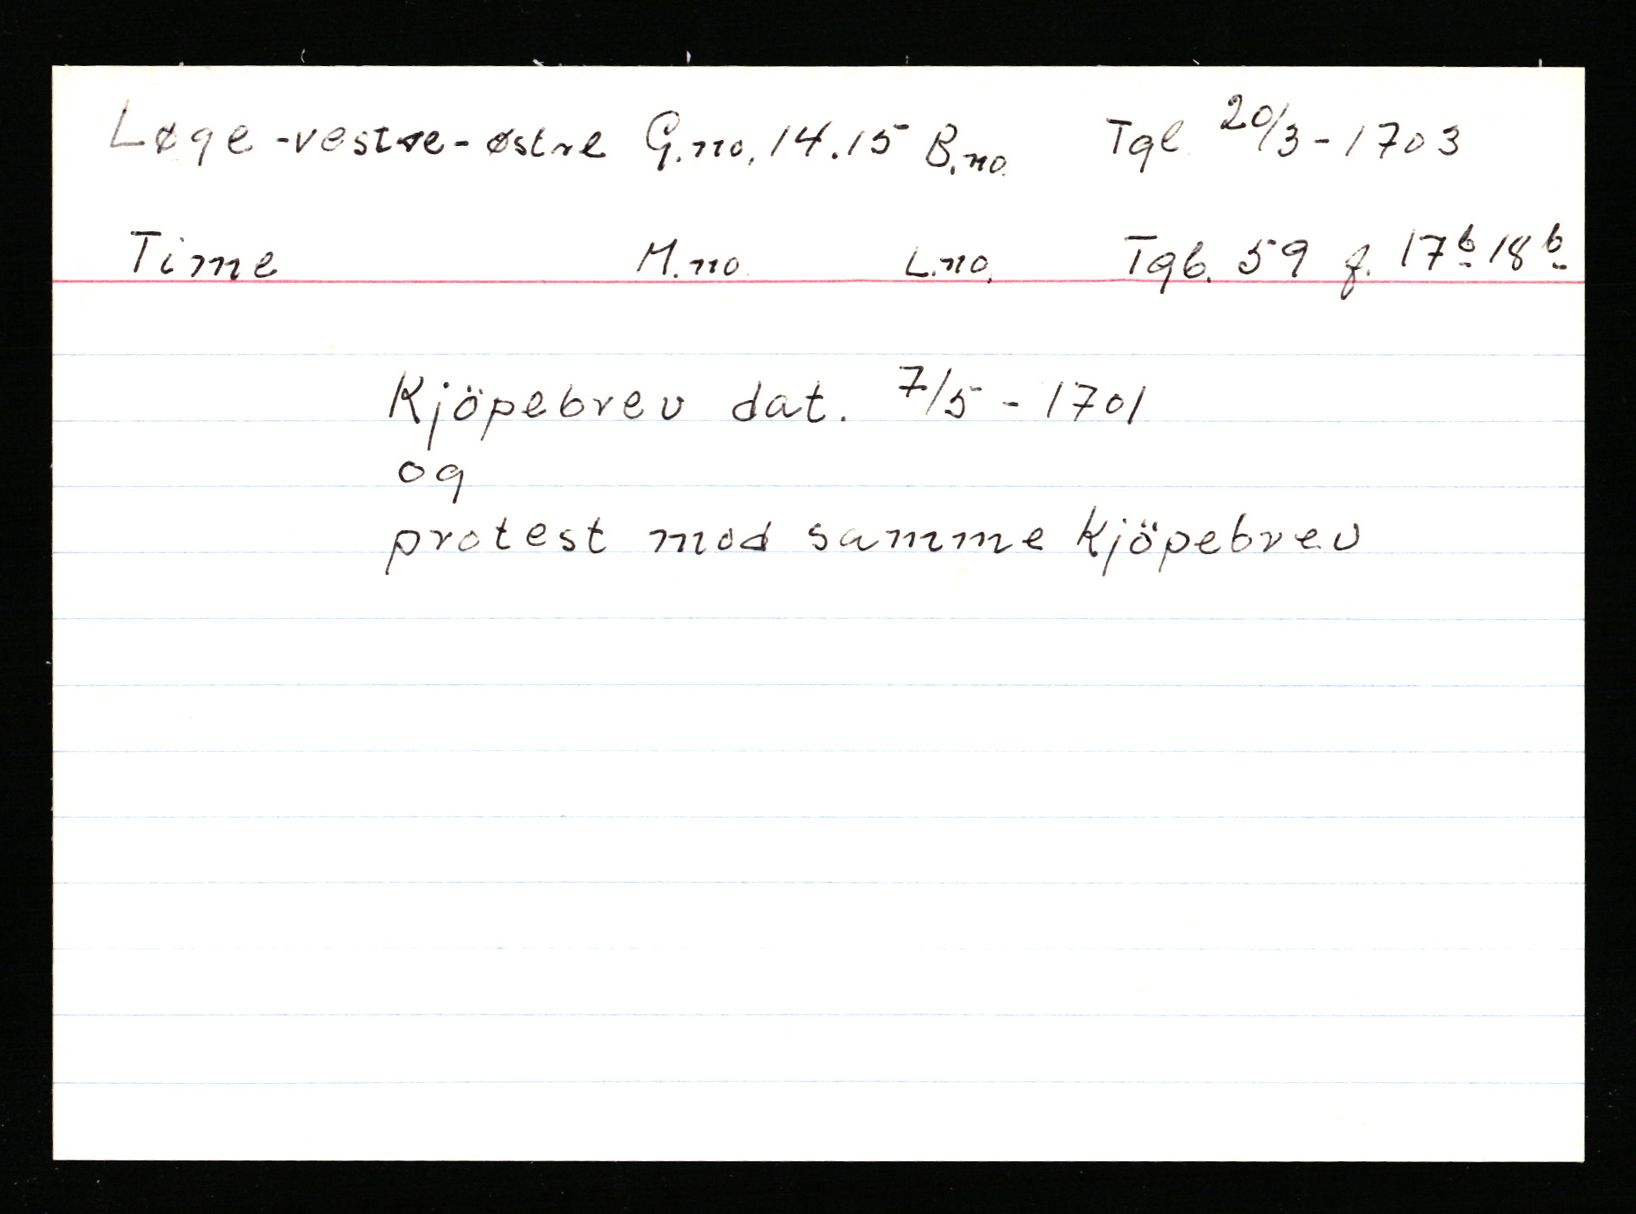 Løge -vestre- østre G.no. 14.15 B.no. Tgl. 20/3 - 1703
Time M.no. L.no. Tgb. 59 f. 17b 18b
Kjöpebrev dat. 7/5 - 1701
og
protest mod samme Kjöpebrev